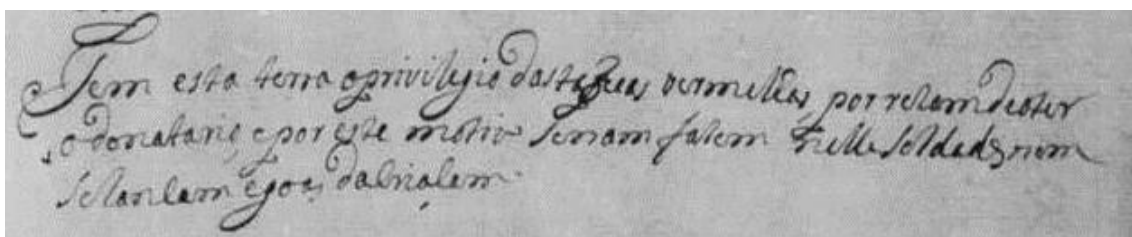 Tem esta terra o privilegio das taboas vermelhas, por rezam de o ter
o donatario, e por este motivo se nam fazem nelle soldados, nem
se lanlam egoas da criaçam.